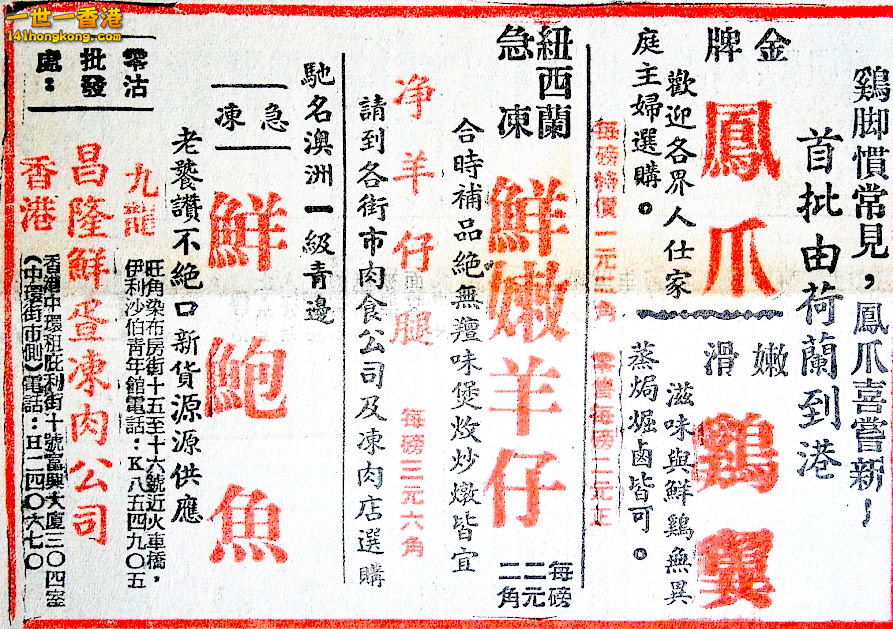 一世一香港
141hongkong.com
鷄脚慣常見，鳳爪喜嘗新！
首批由荷蘭到港
金牌
鳳爪
歡迎各界人仕家
庭主婦選購。
嫩滑
鷄翼
滋味與鮮鷄無異
蒸焗煀鹵皆可。
每磅特價一元三角
零售每磅二元正
紐西蘭
急凍
鮮嫩羊仔
每磅
三元
二角
合時補品絶無羶味煲炆炒燉皆宜
净羊仔腿
每磅三元六角
請到各街市肉食公司及凍肉店選購
馳名澳洲一級青邊
急凍
鮮鮑魚
老饕讚不絕口新貨源源供應
零沽
批發
處：
九龍
旺角染布房街十五至十六號近火車橋，
伊利沙伯青年館電話：K八五四九〇五
昌隆鮮蛋凍肉公司
香港
香港中環租庇利街十號富興大廈三〇四室
（中環街市側）電話：H二四〇六七〇